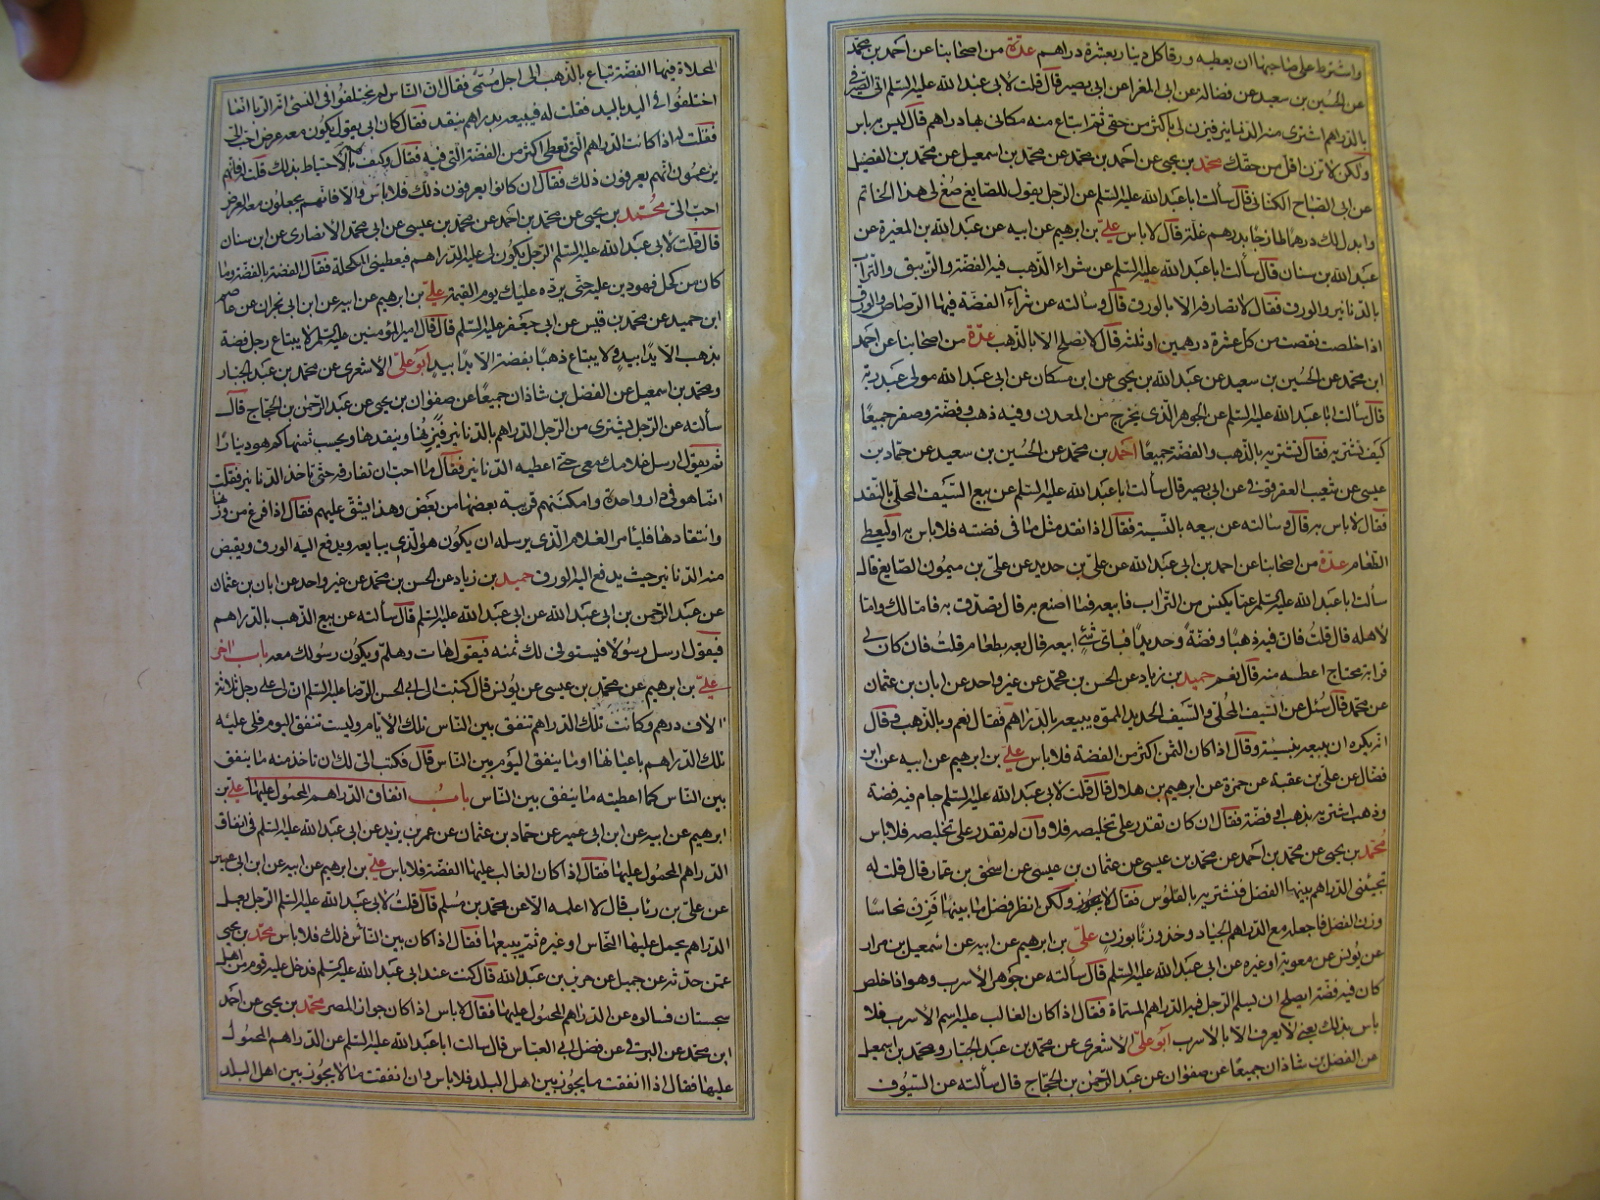 واشترط على صاحبها ان يعطيه ورقا كل دينار بعشرة دراهم عدة من اصحابنا عن احمد بن محمد
عن الحسين بن سعيد عن فضالة عن ابى المغرا عن ابى بصير قال قلت لابى عبد الله عليه السلم اتى الصيرفي
بالدراهم اشترى منه الدنانير فيزن لى باكثر من حقى ثم ابتاع منه مكانى بها دراهم قال ليس به باس
ولكن لا تزن اقل من حقك محمد بن يحيى عن احمد بن محمد عن محمد بن اسمعيل عن محمد بن الفضيل
عن ابى الصباح الكنانى قال سألت ابا عبد الله عليه السلم عن الرجل يقول للصايغ صغ لى هذا الخاتم
وابدل لك درهما طازجا بدرهم غلة قال لا باس على بن ابرهيم عن ابيه عن عبد الله بن المغيرة عن
عبد الله بن سنان قال سألت ابا عبد الله عليه السلم عن شراء الذهب فيه الفضة والزيبق والتراب
بالدنانير والورق فقال لا تصارفه الا بالورق قال وسالته عن شراء الفضة فيها الرصاص والورق
اذا خلصت نقصت من كل عشرة درهمين او ثلثة قال لا تصلح الا بالذهب عدة من اصحابنا عن احمد
ابن محمد عن الحسين بن سعيد عن عبد الله بن يحيى عن ابن مسكان عن ابى عبد الله مولى عبد ربه
قال سألت ابا عبد الله عليه السلم عن الجوهر الذى يخرج من المعدن وفيه ذهب وفضة وصفر جميعًا
كيف نشتريه فقال تشتريه بالذهب والفضة جميعًا احمد بن محمد عن الحسين بن سعيد عن حماد بن
عيسى عن شعيب العقرقوفى عن ابى بصير قال سألت ابا عبد الله عليه السلم عن بيع السيف المحلى بالنقد
فقال لا باس به قال وسالته عن بيعه بالنسية فقال اذا نقد مثل ما فى فضته فلا باس به او ليعطى
الطعام عدة من اصحابنا عن احمد بن ابى عبد الله عن على بن حديد عن على بن ميمون الصايغ قال
سألت ابا عبد الله عليه السلم عما يكنس من التراب فابيعه فما اصنع به قال تصدق به فاما لك واما
لاهله قال قلت فان فيه ذهبًا وفضة وحديدًا فباى شئ ابيعه قال بعه بطعام قلت فان كان لى
قرابة محتاج اعطيه منه قال نعم حميد بن زياد عن الحسن بن محمد عن غير واحد عن ابان بن عثمان
عن محمد قال سئل عن السيف المحلى والسيف الحديد المموه يبيعه بالدراهم فقال نعم وبالذهب وقال
انه يكره ان يبيعه بنسيئة وقال اذا كان الثمن اكثر من الفضة فلا باس على بن ابرهيم عن ابيه عن ابن
فضال عن على بن عقبة عن حمزة عن ابرهيم بن هلال قال قلت لابى عبد الله عليه السلم جام فيه فضة
وذهب اشتريه بذهب او فضة فقال ان كان تقدر على تخليصه فلا وان لم تقدر على تخليصه فلا باس
محمد بن يحيى عن محمد بن احمد عن محمد بن عيسى عن عثمان بن عيسى عن اسحق بن عمار قال قلت له
تجيئنى الدراهم بينها الفضل فنشتريه بالفلوس فقال لا يجوز ولكن انظر فضل ما بينهما فزن نحاسًا
وزن الفضل فاجعله مع الدراهم الجياد وخذ وزنا بوزن على بن ابرهيم عن ابيه عن اسمعيل بن مرار
عن يونس عن معوية او غيره عن ابى عبد الله عليه السلم قال سألته عن جوهر الاسرب وهو اذا خلص
كان فيه فضة ايصلح ان يسلم الرجل فيه الدراهم المسماة فقال اذا كان الغالب عليه اسم الاسرب فلا
باس بذلك يعنى لا يعرف الا بالاسرب ابو على الاشعرى عن محمد بن عبد الجبار ومحمد بن اسمعيل
عن الفضل بن شاذان جميعًا عن صفوان عن عبد الرحمن بن الحجاج قال سألته عن السيوف
المحلاة فيها الفضة تباع بالذهب الى اجل مسمى فقال ان الناس لم يختلفوا فى النسئ انه الربا انما
اختلفوا فى اليد باليد فقلت له فيبيعه بدراهم بنقد فقال كان ابى يقول يكون معه عرض احب الى
فقلت له اذا كانت الدراهم التى تعطى اكثر من الفضة التى فيه فقال وكيف لهم بالاحتياط بذلك قلت له فانهم
يزعمون انهم يعرفون ذلك فقال ان كانوا يعرفون ذلك فلا باس والا فانهم يجعلون معه العرض
احب الى محمد بن يحيى عن محمد بن احمد عن محمد بن عيسى عن ابى محمد الانصارى عن ابن سنان
قال قلت لابى عبد الله عليه السلم الرجل يكون لى عليه الدراهم فيعطينى المكحلة فقال الفضة بالفضة وما
كان من كحل فهو دين عليه حتى يرده عليك يوم القيمة على بن ابرهيم عن ابيه عن ابن ابى نجران عن عاصم
ابن حميد عن محمد بن قيس عن ابى جعفر عليه السلم قال قال امير المؤمنين عليه السلم لا يبتاع رجل فضة
بذهب الا يدًا بيد ولا يبتاع ذهبًا بفضة الا يدًا بيد ابو على الاشعرى عن محمد بن عبد الجبار
ومحمد بن اسمعيل عن الفضل بن شاذان جميعًا عن صفوان بن يحيى عن عبد الرحمن بن الحجاج قال
سألته عن الرجل يشترى من الرجل الدراهم بالدنانير فيزنها وينقدها ويحسب ثمنها كم هو دينارًا
ثم يقول ارسل غلامك معى حتى اعطيه الدنانير فقال ما احب ان تفارقه حتى تاخذ الدنانير فقلت
انما هو فى دار واحدة وامكنتهم قريبة بعضها من بعض وهذا يشق عليهم فقال اذا فرغ من وزنها
وانتقادها فليأمر الغلام الذى يرسله ان يكون هو الذى يبايعه ويدفع اليه الورق ويقبض
منه الدنانير حيث يدفع اليه الورق حميد بن زياد عن الحسن بن محمد عن غير واحد عن ابان بن عثمان
عن عبد الرحمن بن ابى عبد الله عن ابى عبد الله عليه السلم قال سألته عن بيع الذهب بالدراهم
فيقول ارسل رسولا فيستوفى لك ثمنه فيقول هات وهلم ويكون رسولك معه باب اخر
على بن ابرهيم عن محمد بن عيسى عن يونس قال كتبت الى ابى الحسن الرضا عليه السلم ان لى على رجل ثلاثة
الاف درهم وكانت تلك الدراهم تنفق بين الناس تلك الايام وليست تنفق اليوم فلى عليه
تلك الدراهم باعيانها او ما ينفق اليوم بين الناس قال فكتب الى لك ان تاخذ منه ما ينفق
بين الناس كما اعطيته ما ينفق بين الناس باب انفاق الدراهم المحمول عليها على بن
ابرهيم عن ابيه عن ابن ابى عمير عن حماد بن عثمان عن عمر بن يزيد عن ابى عبد الله عليه السلم فى انفاق
الدراهم المحمول عليها فقال اذا كان الغالب عليها الفضة فلا باس على بن ابرهيم عن ابيه عن ابن ابى عمير
عن على بن رئاب قال لا اعلمه الا عن محمد بن مسلم قال قلت لابى عبد الله عليه السلم الرجل يعمل
الدراهم يحمل عليها النحاس او غيره ثم يبيعها فقال اذا كان بين الناس ذلك فلا باس محمد بن يحيى
عمن حدثه عن جميل عن حريز بن عبد الله قال كنت عند ابى عبد الله عليه السلم فدخل عليه قوم من اهل
سجستان فسالوه عن الدراهم المحمول عليها فقال لا باس اذا كان جواز المصر محمد بن يحيى عن احمد
ابن محمد عن البرقى عن فضل ابى العباس قال سالت ابا عبد الله عليه السلم عن الدراهم المحمول
عليها فقال اذا انفقت ما يجوز بين اهل البلد فلا باس وان انفقت ما لا يجوز بين اهل البلد